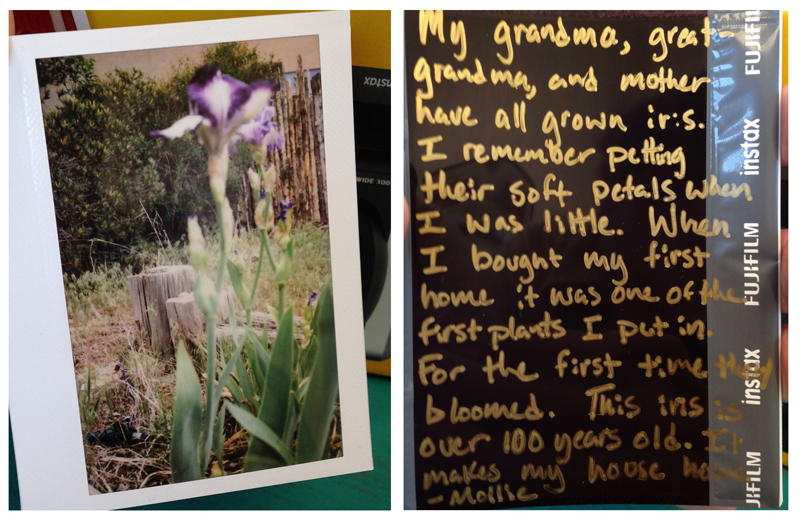 instax
WIDE 300
My grandma, great-
grandma, and mother
have all grown iris.
I remember petting
their soft petals when
I was little. When
I bought my first
home it was one of the
first plants I put in.
For the first time they
bloomed. This iris is
over 100 years old. It
makes my house home
- Mollie
FUJIFILM
instax
FUJIFILM
instax
FUJIFILM